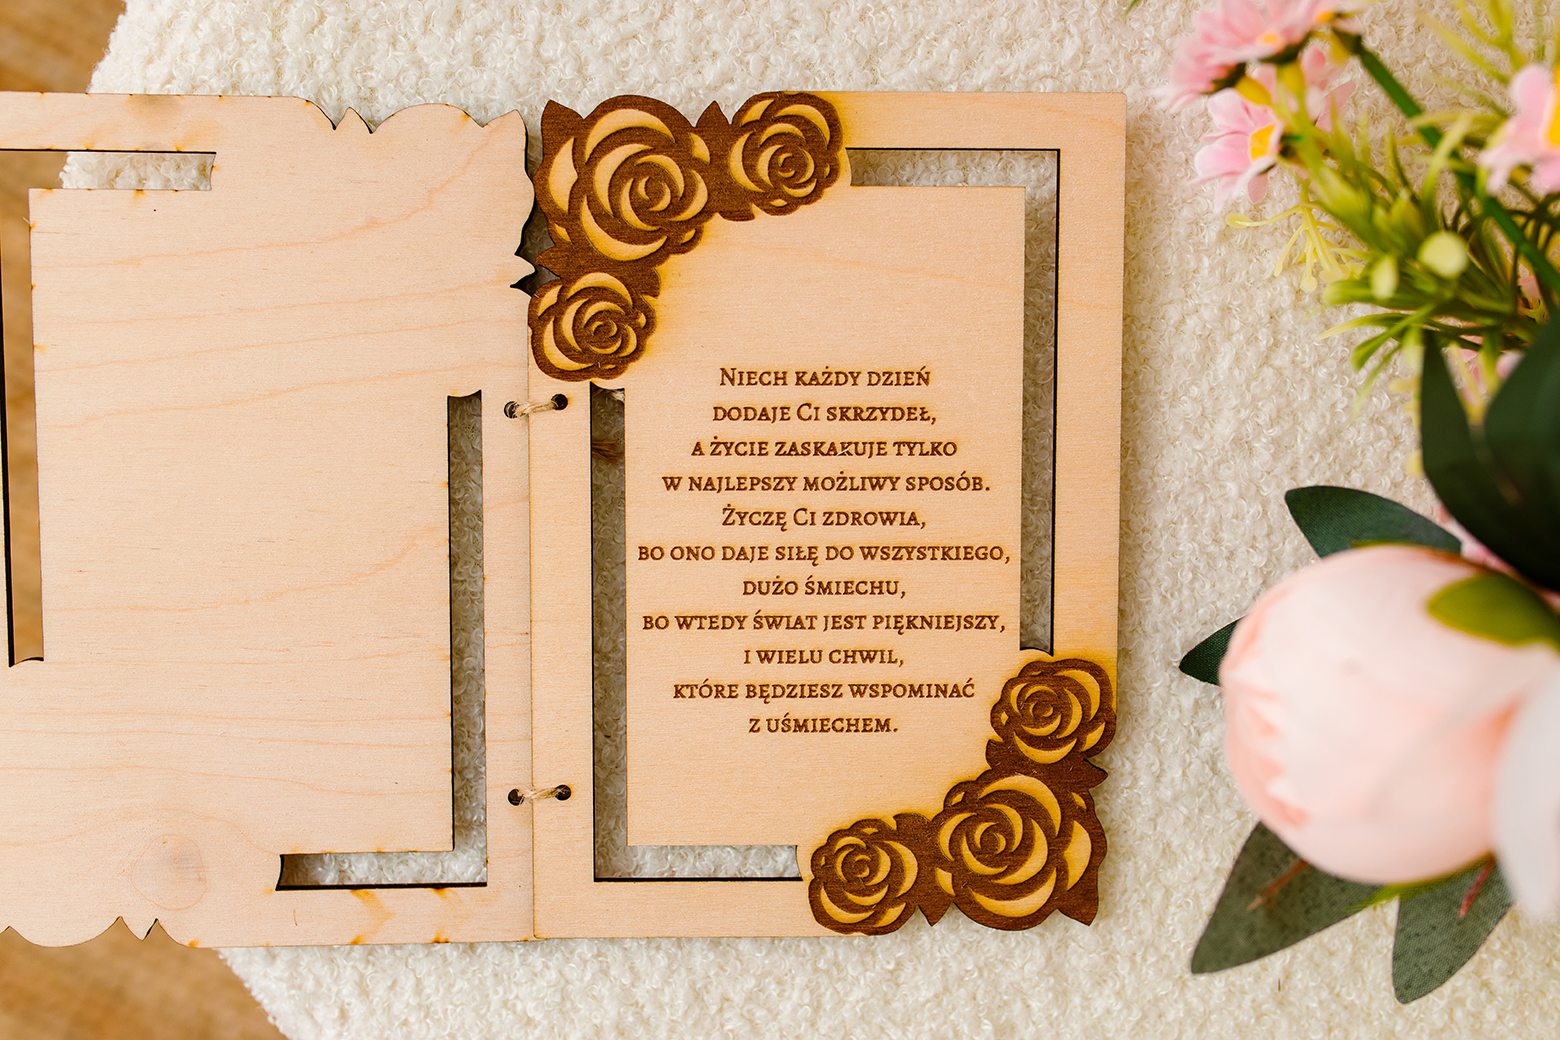 Niech każdy dzień
dodaje Ci skrzydeł,
a życie zaskakuje tylko
w najlepszy możliwy sposób.
Życzę Ci zdrowia,
bo ono daje siłę do wszystkiego,
dużo śmiechu,
bo wtedy świat jest piękniejszy,
i wielu chwil,
które będziesz wspominać
z uśmiechem.